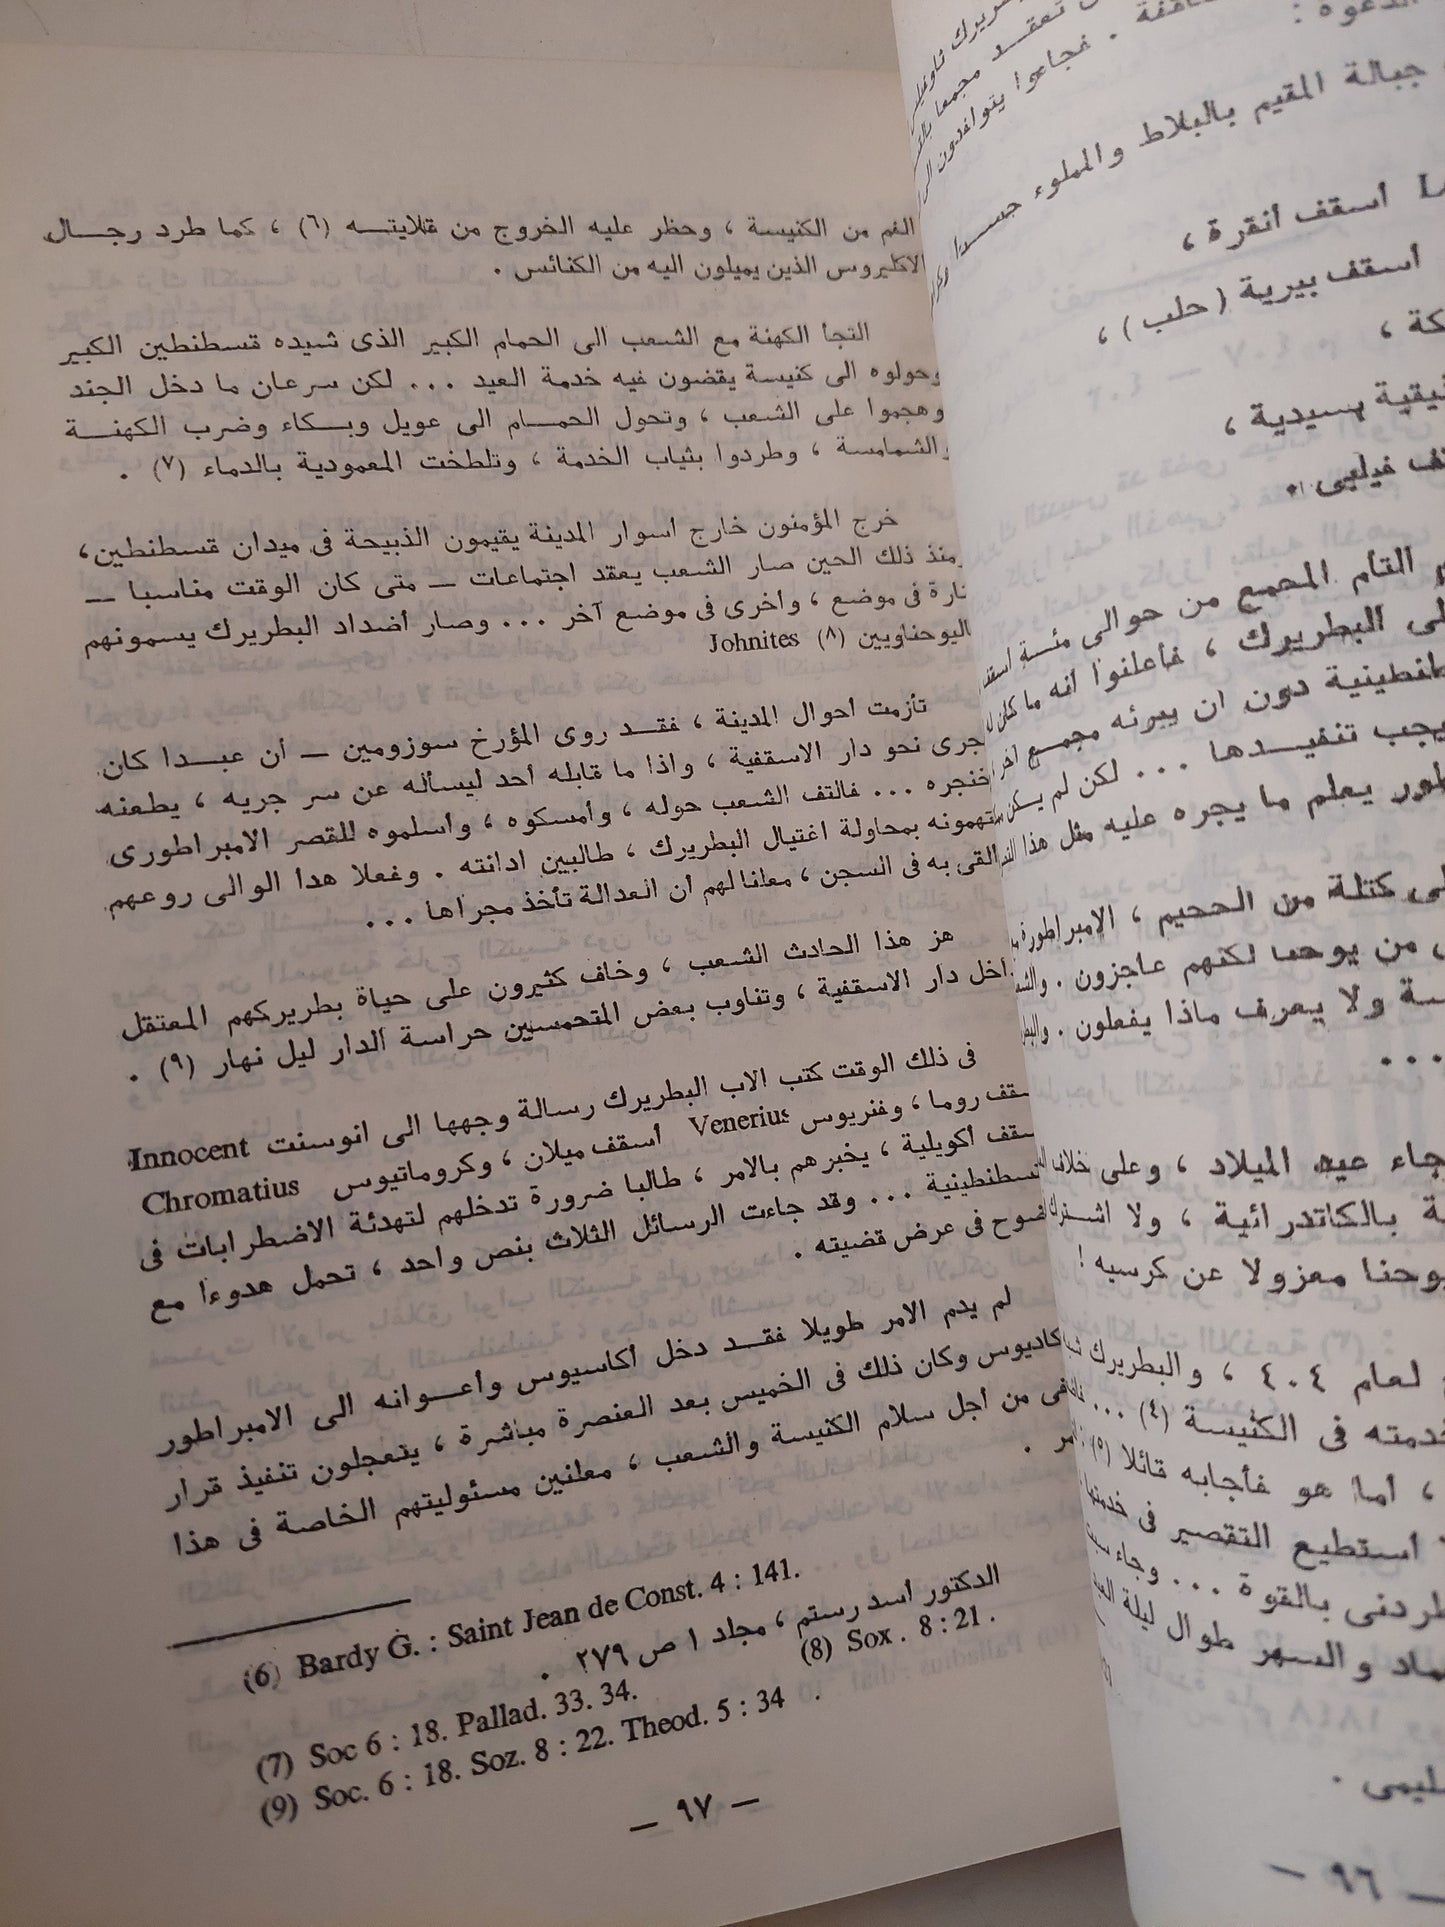 جبالة المقيم بالبلاط والمملوء حسدا
أسقف أنقرة ،
أسقف بيرية ( حلب ) ،
بسيدية ،
فيلبى .
التأم المجمع من حوالى مئة
البطريرك ، فأعلنوا أنه ما كان
دون ان يبرئه مجمع
يجب تنفيدها ... لكن لم يكن
يعلم ما يجره عليه مثل هذا
كتلة من الجحيم ، الإمبراطورة
من يوحنا لكنهم عاجزون .
ولا يعرف ماذا يفعلون .
...
جاء عيد الميلاد ، وعلى خلاف
بالكاتدرائية ، ولا
معزولا عن كرسيه !
لعام ٤٠٤ ، والبطريرك
خدمته فى الكنيسة (٤) ...
، أما هو فأجابه قائلا (٥)
استطيع التقصير فى
بالقوة ... وجاء
والسهر طوال ليلة
— ٩٦ —
الفم من الكنيسة ، وحظر عليه الخروج من قلايته (٦) ، كما طرد رجال
الاكليروس الذين يميلون اليه من الكنائس .
التجا الكهنة مع الشعب الى الحمام الكبير الذى شيده قسطنطين الكبير
وحولوه الى كنيسة يقضون فيه خدمة العيد ... لكن سرعان ما دخل الجند
وهجموا على الشعب ، وتحول الحمام الى عويل وبكاء وضرب الكهنة
والشمامسة ، وطردوا بثياب الخدمة ، وتلطخت المعمودية بالدماء (٧) .
خرج المؤمنون خارج اسوار المدينة يقيمون الذبيحة فى ميدان قسطنطين،
ومنذ ذلك الحين صار الشعب يعقد اجتماعات — متى كان الوقت مناسبا —
تارة فى موضع ، وأخرى فى موضع آخر ... وصار أضداد البطريرك يسمونهم
اليوحناويين (٨) Johnites
تأزمت أحوال المدينة ، فقد روى المؤرخ سوزومين — أن عبدا كان
جرى نحو دار الاسقفية ، واذا ما قابله أحد ليسأله عن سر جريه ، يطعنه
خنجره ... فالتف الشعب حوله ، وأمسكوه ، وأسلموه للقصر الامبراطورى
تهمونه بمحاولة اغتيال البطريرك ، طالبين ادانته . وفعلا هدا الوالى روعهم
القى به فى السجن ، معلنا لهم أن العدالة تأخذ مجراها ...
هز هذا الحادث الشعب ، وخاف كثيرون على حياة بطريركهم المعتقل
داخل دار الاسقفية ، وتناوب بعض المتحمسين حراسة الدار ليل نهار (٩) .
فى ذلك الوقت كتب الاب البطريرك رسالة وجهها الى انوسنت Innocent
سقف روما ، وفنريوس Venerius أسقف ميلان ، وكروماتيوس Chromatius
سقف أكويلية ، يخبرهم بالامر ، طالبا ضرورة تدخلهم لتهدئة الاضطرابات فى
قسطنطينية ... وقد جاءت الرسائل الثلاث بنص واحد ، تحمل هدوءا مع
ضوح فى عرض قضيته .
لم يدم الامر طويلا فقد دخل أكاسيوس وأعوانه الى الامبراطور
كاديوس وكان ذلك فى الخميس بعد العنصرة مباشرة ، يتعجلون تنفيذ قرار
فى من اجل سلام الكنيسة والشعب ، معلنين مسئوليتهم الخاصة فى هذا
امر .
(6) Bardy G. : Saint Jean de Const. 4 : 141.
الدكتور أسد رستم ، مجلد ١ ص ٢٧٩ .
(7) Soc 6 : 18. Pallad. 33. 34. (8) Sox . 8 : 21 .
(9) Soc. 6 : 18. Soz. 8 : 22. Theod. 5 : 34 .
— ٩٧ —